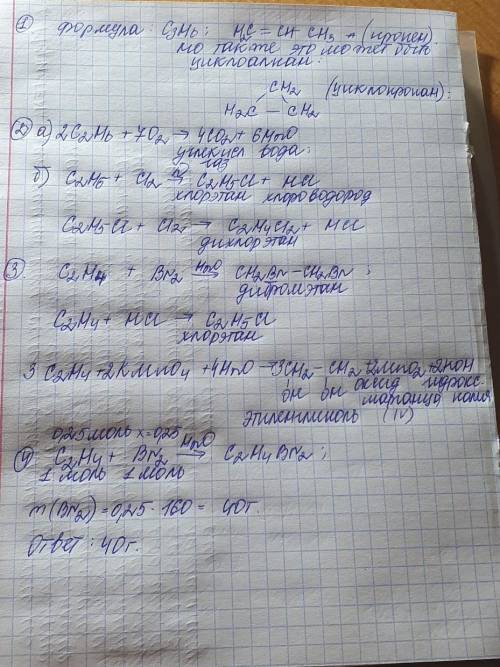 ① формула: C3H6; H2C = CH CH3 (пропен)
но также это может быть
циклоалкан:
CH2 (циклопропан):
H2C — CH2
② а) 2C2H6 + 7O2 → 4CO2 + 6H2O
углекисл вода.
газ
б) C2H6 + Cl2 → C2H5Cl + HCl
хлорэтан хлороводород
C2H5Cl + Cl2 → C2H4Cl2 + HCl
дихлорэтан
③ C2H4 + Br2 H2O→ CH2Br – CH2Br ;
дибромэтан
C2H4 + HCl → C2H5Cl
хлорэтан
3 C2H4 + 2KMnO4 + 4H2O → 3CH2 – CH2 + 2MnO2 + 2KOH
OH OH оксид гидрокс.
марганца калия
этиленгликоль (IV)
0,25 моль x = 0,25
④ C2H4 + Br2 H2O→ C2H4Br2 ;
1 моль 1 моль
m(Br2) = 0,25 · 160 = 40г.
Ответ: 40г.